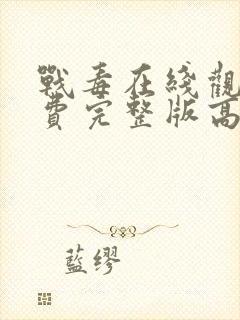 戰毒在綫觀
費完整版高
藍缪